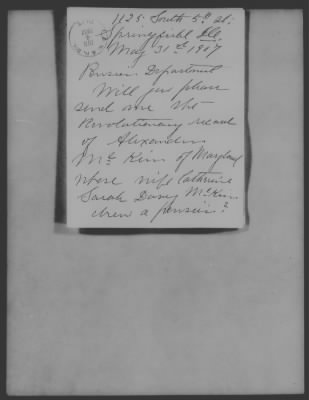 1125, South 5th St:
Springfield Ill.
May 31st 1917
Pension Department
Will you please
send me the
Revolutionary record
of Alexander
McKim of Maryland
whose wife Catherine
Sarah Davey McKim
drew a pension?